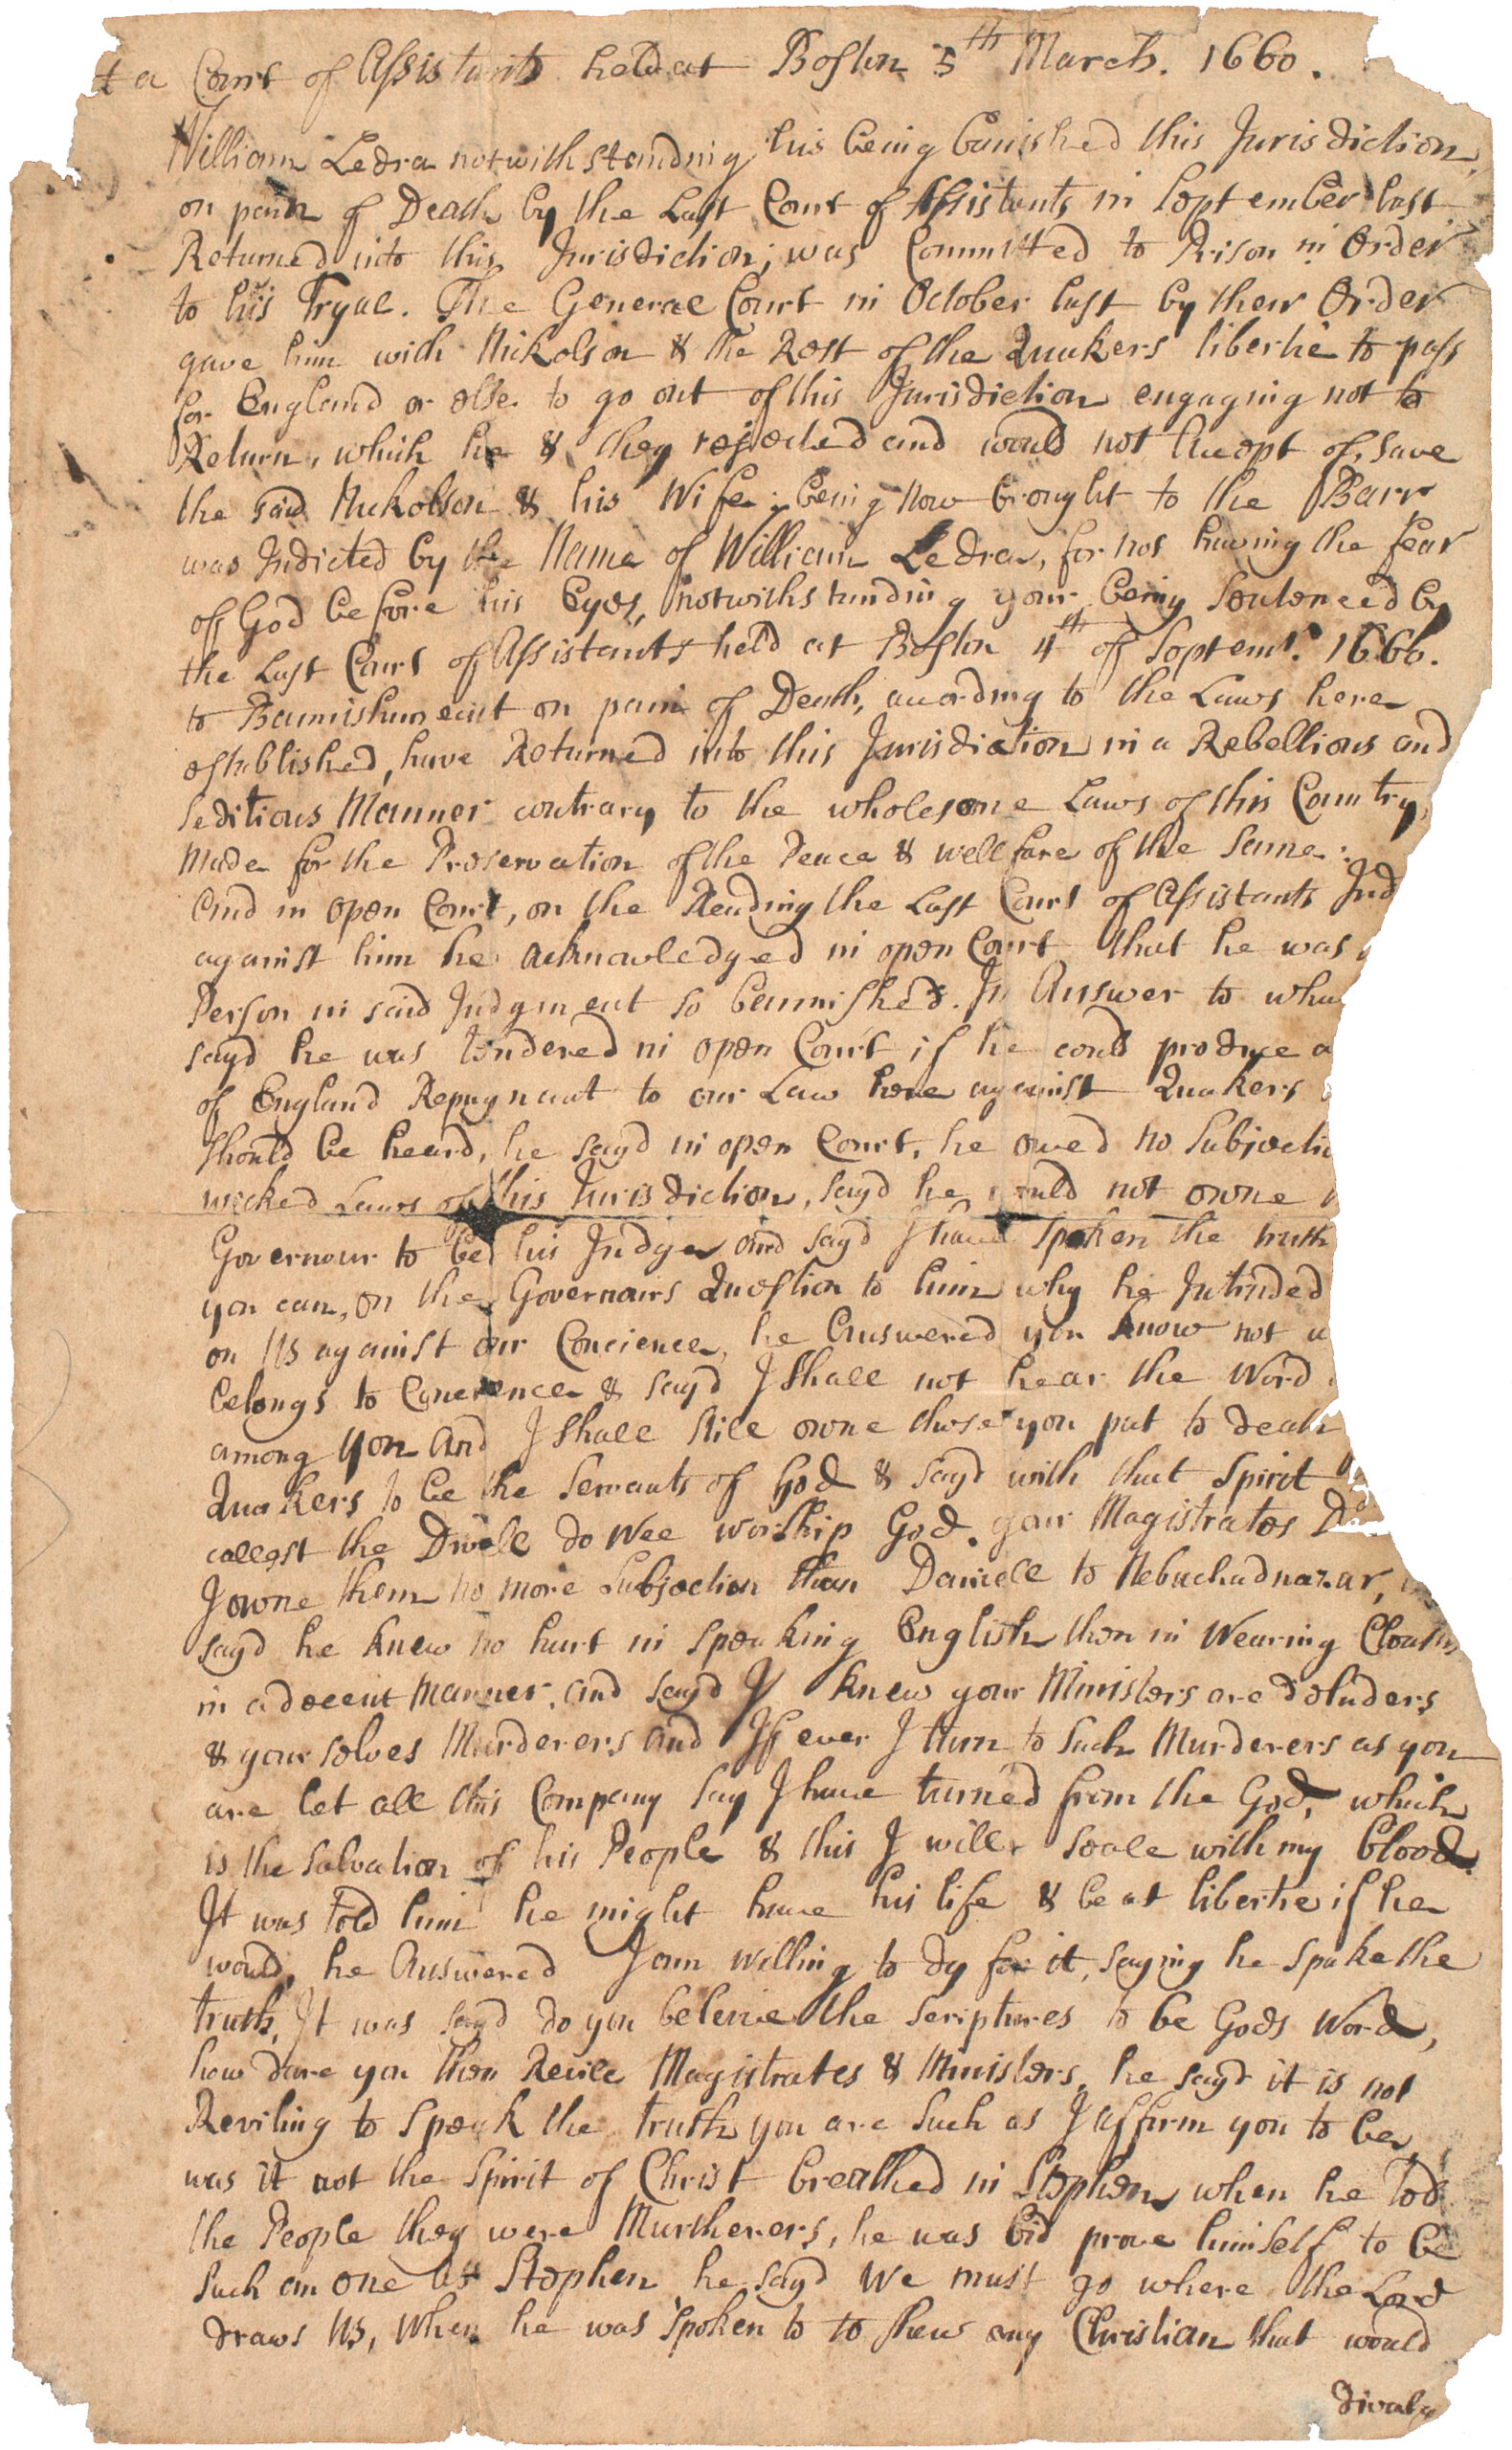 t a Court of Assistants held at Boston 5th March. 1660.
William Ledra notwithstanding his being banished this Jurisdiction,
on pain of Death by the Last Court of Assistants in Septembeber last
Returned into this Jurisdiction; was Committed to Prison in Order
to his Tryal. The General Court in October last by their Order
gave him with Nickolson & the Rest of the Quakers libertie to pass
for England or else to go out of this Jurisdiction engaging not to
Return, which he & they rejected and would not Accept of, save
the said Nickolson & his Wife; being now brought to the Barr
was Indicted by the Name of William Ledra, for not having the fear
of God before his Eyes, notwithstanding your being Sentenced by
the Last Court of Assistants held at Boston 4th of Septemr. 1660.
to Bannishment on pain of Death, acording to the Laws here
established, have Returned into this Jurisdiction in a Rebellious and
Seditious Manner contrary to the wholesome Laws of this Country,
Made for the Preservation of the Peace & wellfare of the Same:
And in open Court, on the Reading the Last Court of Assistants Jud
against him he acknowledged in open Court that he was
Person in said Judgment so bannished. In Answer to wha
sayd he was tendered in open Court if he could produce a
of England Repugnant to our Law here against Quakers
should be heard, he sayd in open Court, he owed no Subjectio
wicked Laws of this Jurisdiction, sayd he would not owne
Governour to be his Judge and sayd I have spoken the truth
you can, on the Governours Question to him why he Intruded
on Us against our Concience, he Answered you know not w
belongs to Concience & sayd I shall not hear the Word
among you And I shall still owne those you put to death
Quakers to be the Servants of God & sayd with that Spirit
callest the Divell do Wee worship God. your Magistrates D
I owne them no more Subjection than Daniell to Nebuchadnazar,
sayd he knew no hurt in Speaking English then in Wearing Cloaths
in a decent Manner, and sayd I knew your Ministers are deluders
& your selves Murderers and If ever I turn to Such Murderers as you
are let all this Company say I have turned from the God, which
is the Salvation of his People & this I will seale with my blood.
It was told him he might have his life & be at libertie if he
would, he Answered I am willing to dy for it, saying he spake the
truth, It was sayd do you beleive the scriptures to be Gods Word,
how dare you then Revile Magistrates & Ministers, he sayd it is not
Reviling to speak the truth you are such as I affirm you to be,
was it not the Spirit of Christ breathed in Stephen when he told
the People they were Murtherers, he was bid prove himself to be
such an one as Stephen he sayd We must go where the Lord
draws Us, When he was spoken to to shew any Christian that would